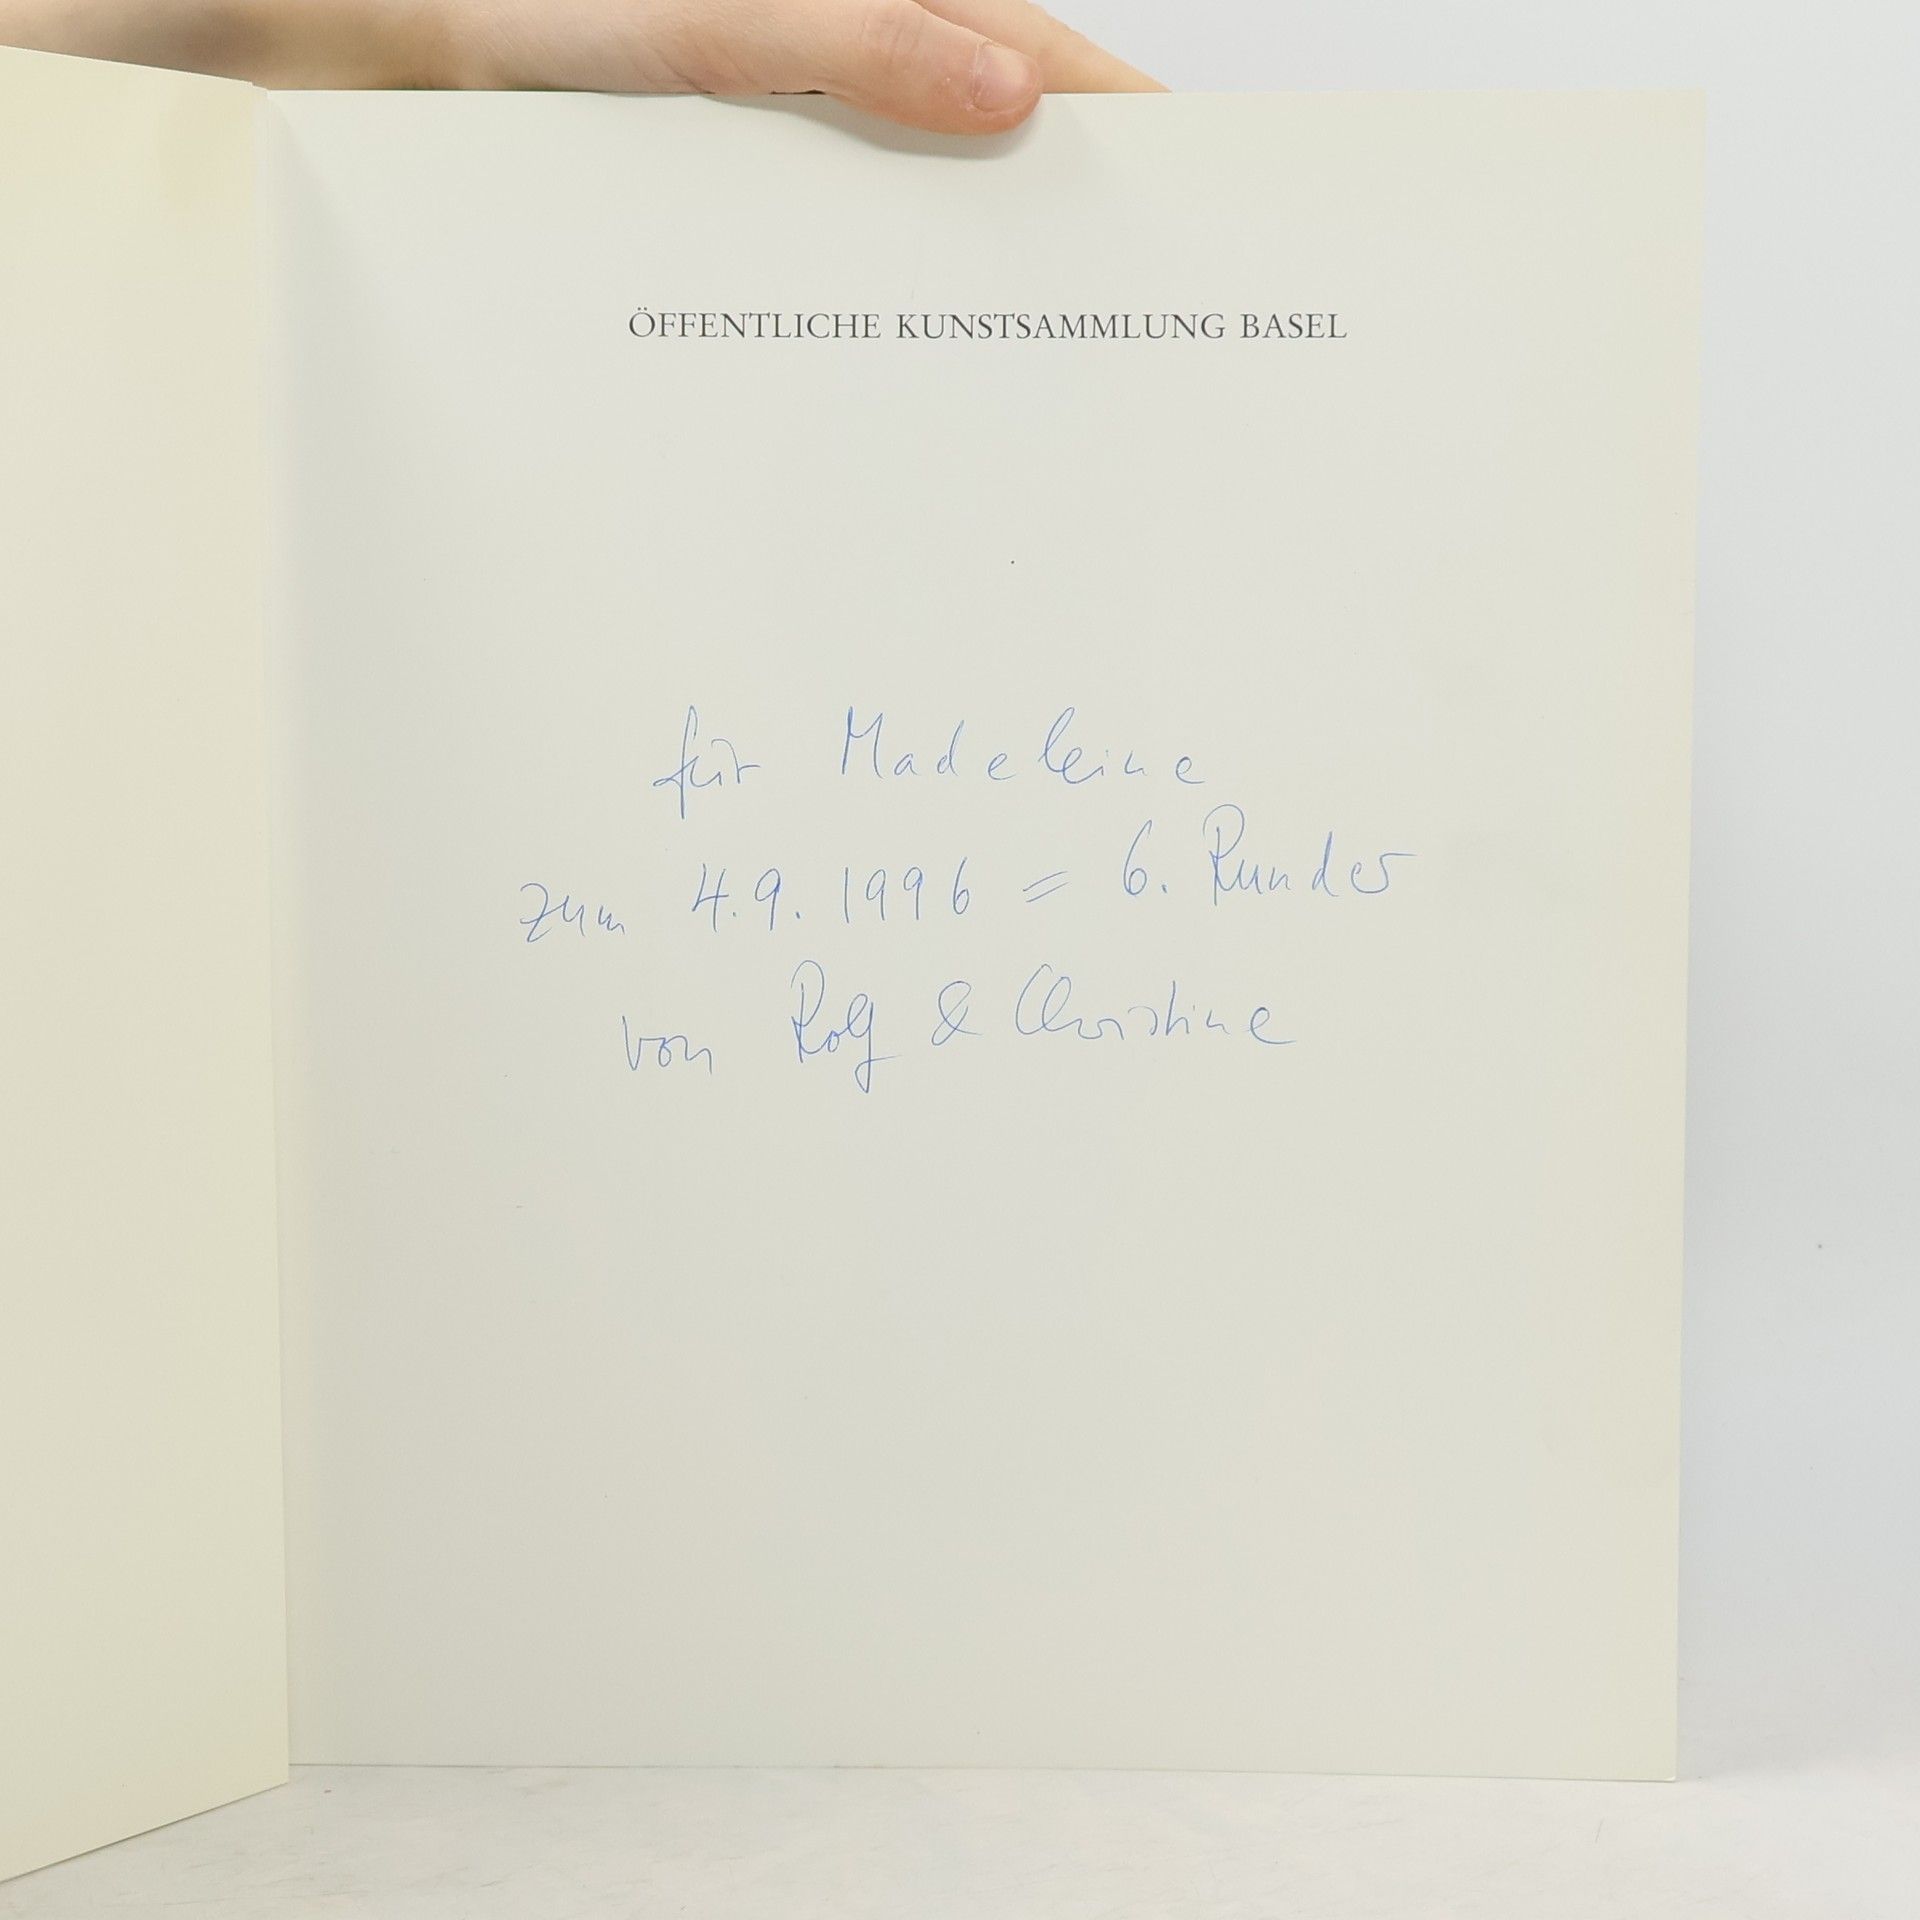 ÖFFENTLICHE KUNSTSAMMLUNG BASEL
für Madeleine
zum 4.9.1996 = 6. Runder
von Rolf & Christine